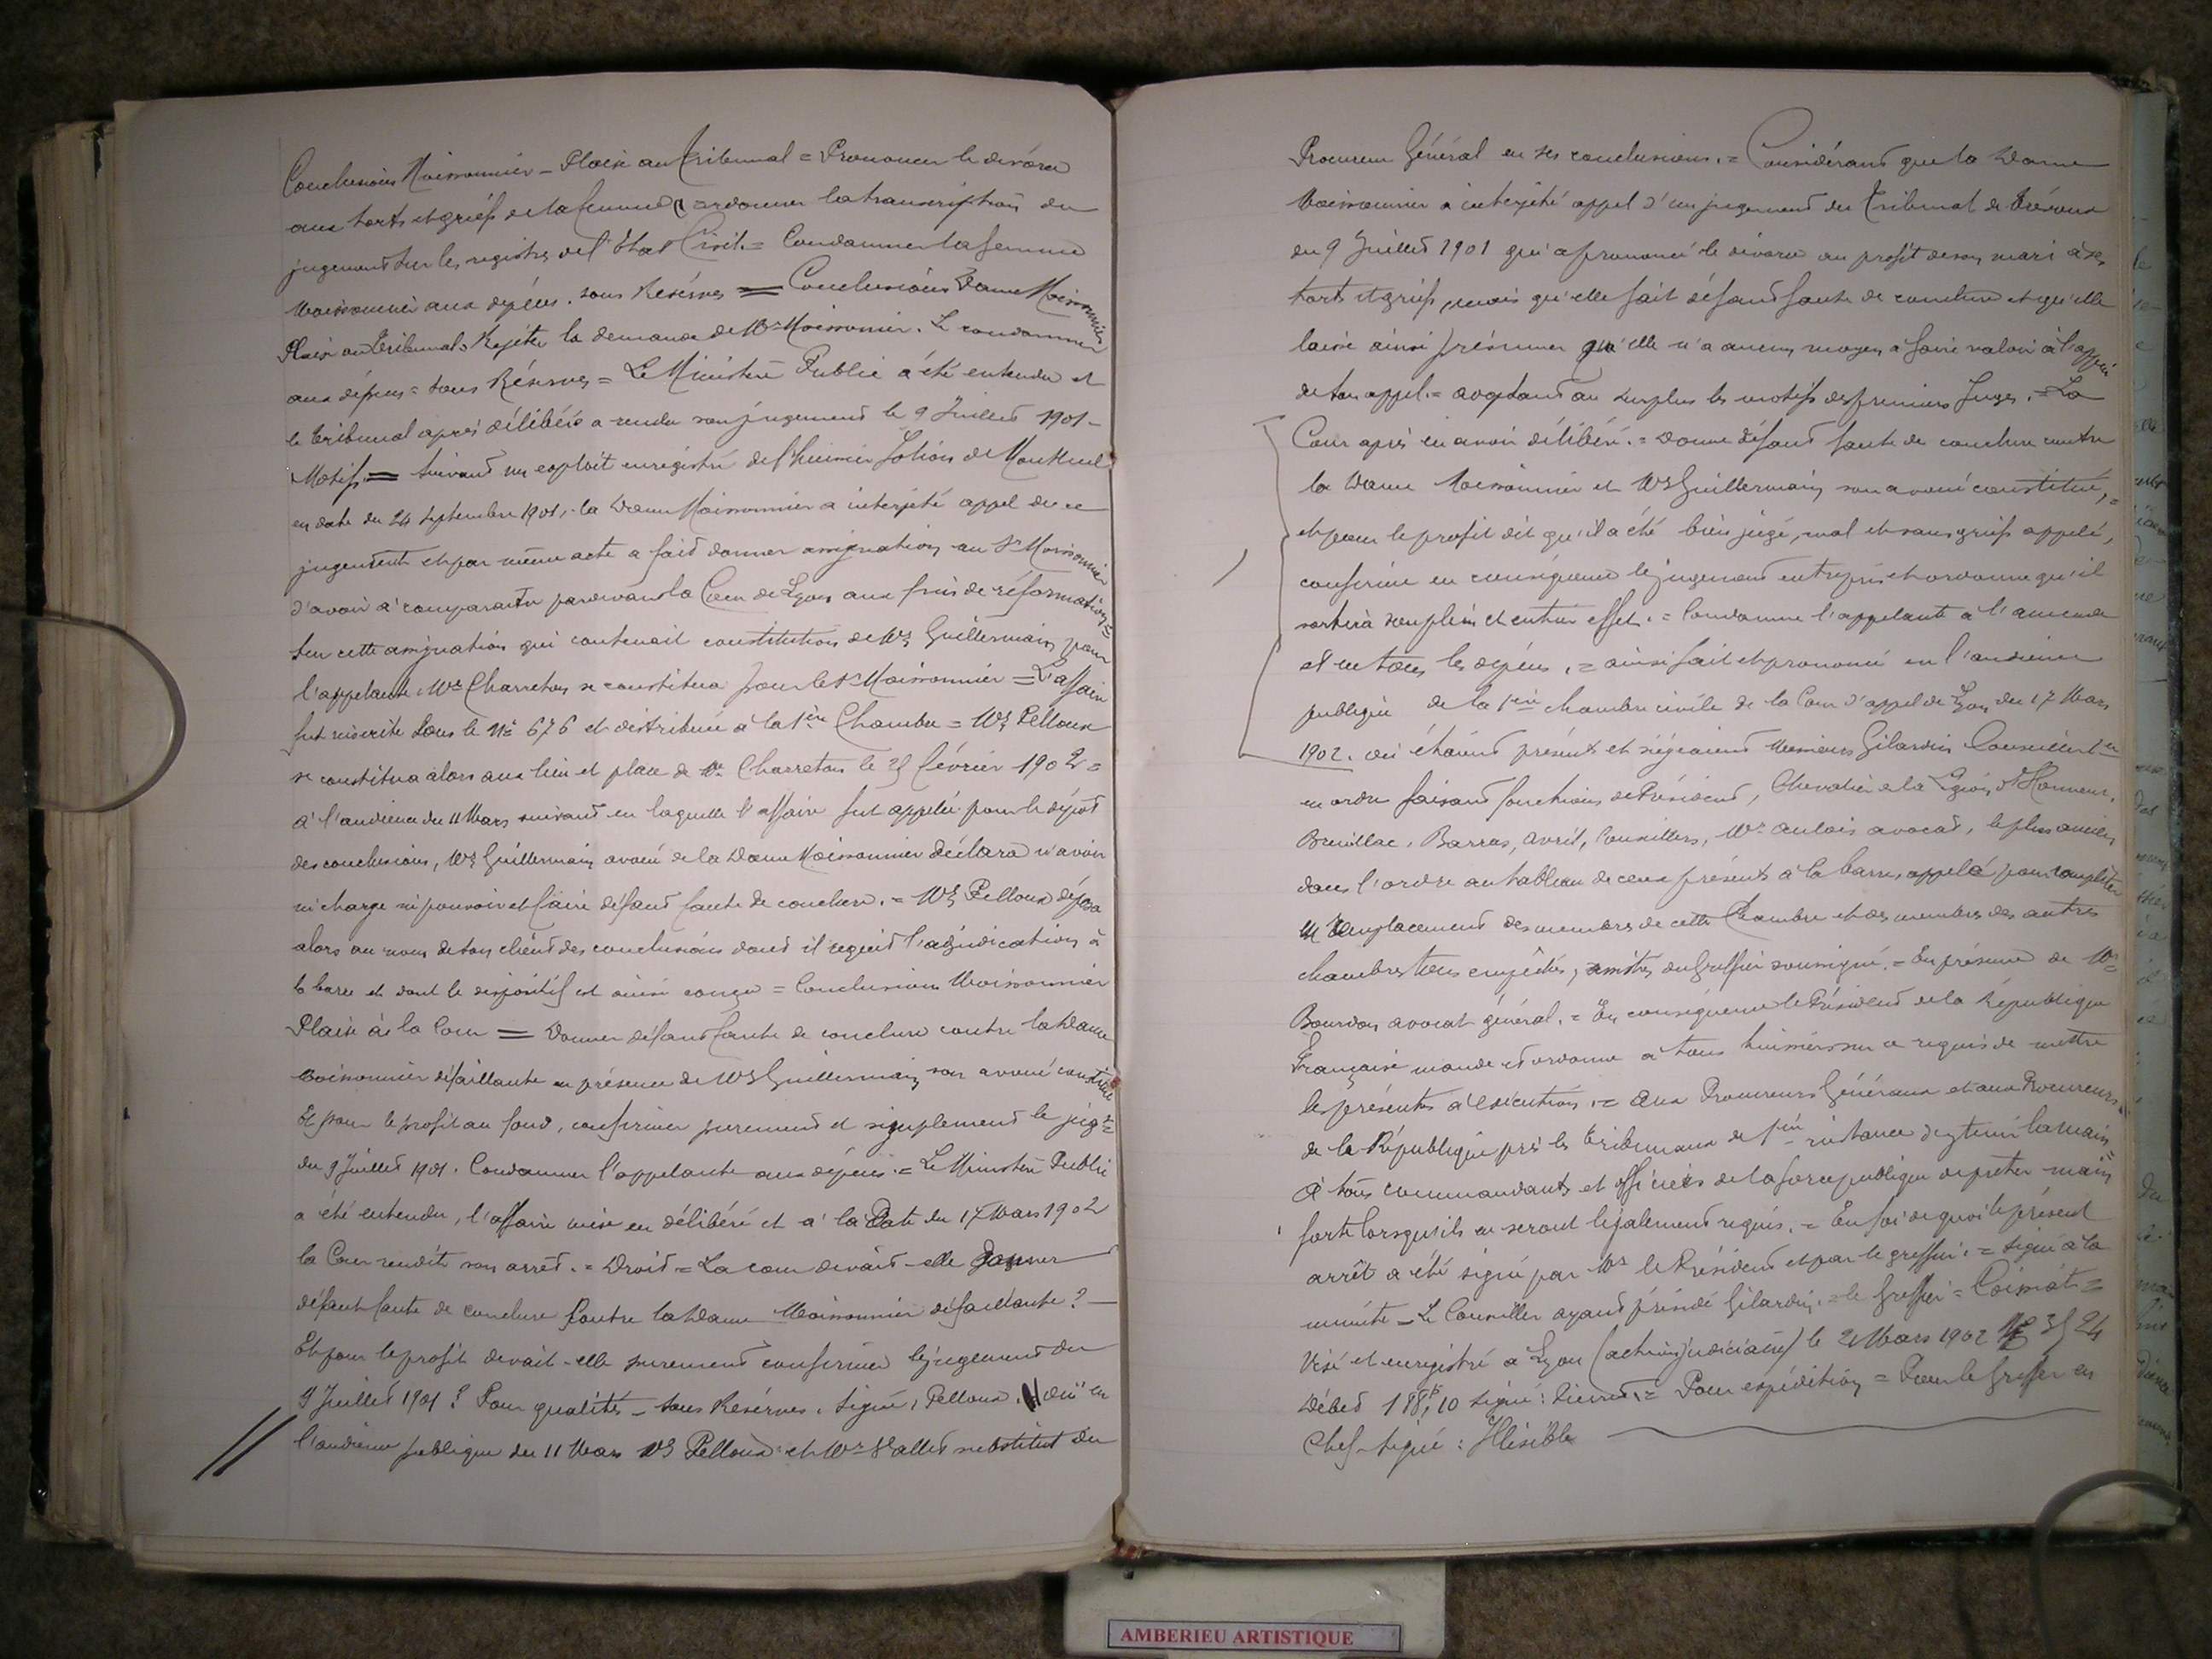 Conclusions Moissonnier - Plaise au Tribunal = Prononcer le divorce
aux torts et griefs de la femme = ordonner la transcription du
jugement sur les registres de l'Etat Civil. = Condamner la femme
Moissonnier aux dépens. sous Réserves = Conclusions Dame Moissonnier
Plaise au Tribunal = Rejeter la demande de Mr Moissonnier. Le condamner
aux dépens = sous Réserves = Le Ministère Public a été entendu et
le Tribunal après délibéré a rendu son jugement le 9 Juillet 1901 -
Motifs = Suivant un exploit enregistré de l'huissier Jolion de Montluel
en date du 24 Septembre 1901, la Dame Moissonnier a interjeté appel de ce
jugement et par même acte a fait donner assignation au Sr Moissonnier
d'avoir à comparaitre pardevant la Cour de Lyon aux fins de réformation =
Sur cette assignation qui contenait constitution de Me Guillermain pour
l'appelante Me Charreton se constitua pour le Sr Moissonnier = L'affaire
fut inscrite sous le No 676 et distribuée à la 1ère Chambre = Me Pelloux
se constitua alors aux lieu et place de Me Charreton le 25 février 1902 =
à l'audience du 11 Mars suivant en laquelle l'affaire fut appelée pour le dépôt
des conclusions, Me Guillermain avoué de la Dame Moissonnier déclara n'avoir
ni charge ni pouvoir et faire défaut faute de conclure. = Me Pelloux déposa
alors au nom de son client des conclusions dont il requit l'adjudication à
la barre et dont le dispositif est ainsi conçu = Conclusions Moissonnier
Plaise à la Cour = Donner défaut faute de conclure contre la Dame
Moissonnier défaillante en présence de Me Guillermain son avoué constitué
Et pour le profit au fond, confirmer purement et simplement le jugt =
du 9 Juillet 1901. Condamner l'appelante aux dépens. = Le Ministère Public
a été entendu, l'affaire mise en délibéré et à la Date du 17 Mars 1902
la Cour rendit son arrêt. = Droit = La cour devait-elle donner
défaut faute de conclure contre la Dame Moissonnier défaillante ? -
Et pour le profit devait-elle purement confirmer le jugement du
9 Juillet 1901 ? Pour qualités - sous Réserves. Signé, Pelloux. // ouï en
// l'audience publique du 11 Mars Me Pelloux et Mr Vallet substitut du
Procureur Général en ses conclusions. = Considérant que la Dame
Moissonnier a interjeté appel d'un jugement du Tribunal de Trévoux
du 9 Juillet 1901 qui a prononcé le divorce au profit de son mari à ses
torts et griefs, mais qu'elle fait défaut faute de conclure et qu'elle
laisse ainsi présumer qu'elle n'a aucun moyen à faire valoir à l'appui
de son appel. = adoptant au surplus les motifs des premiers Juges. = La
Cour après en avoir délibéré. = Donne défaut faute de conclure contre
la Dame Moissonnier et Me Guillermain, son avoué constitué, =
et pour le profit dit qu'il a été bien jugé, mal et sans griefs appelé,
confirme en conséquence le jugement entrepris et ordonne qu'il
sortira son plein et entier effet. = Condamne l'appelante à l'amende
et en tous les dépens. = ainsi fait et prononcé en l'audience
publique de la 1ère chambre civile de la Cour d'appel de Lyon du 17 Mars
1902. où étaient présents et siégeaient Messieurs Gilardin Conseiller 1er
en ordre faisant fonctions de Président, Chevalier de la Légion d'Honneur,
Breuillac, Barras, Avril, Conseillers, Mr Aulois avocat, le plus ancien
dans l'ordre au tableau de ceux présents à la barre, appelé pour compléter
en remplacement des membres de cette Chambre et des membres des autres
chambres tous empêchés, assistés du Greffier soussigné. = En présence de Mr
Bourdon avocat général. = En conséquence le Président de la République
Française mande et ordonne à tous huissiers sur ce requis de mettre
les présentes à exécution. = aux Procureurs Généraux et aux Procureurs
de la République près les Tribunaux de 1ère instance d'y tenir la main
à tous commandants et officiers de la force publique de prêter main
forte lorsqu'ils en seront légalement requis. = En foi de quoi le présent
arrêt a été signé par Mr le Président et par le greffier. = Signé à la
minute - Le Conseiller ayant présidé Gilardin. = le Greffier =
Visé et enregistré à Lyon (actes judiciaires) le 2 Mars 1902
Débet 188f,10 signé : = Pour expédition = Pour le Greffier en
Chef - signé : Illisible
AMBERIEU ARTISTIQUE